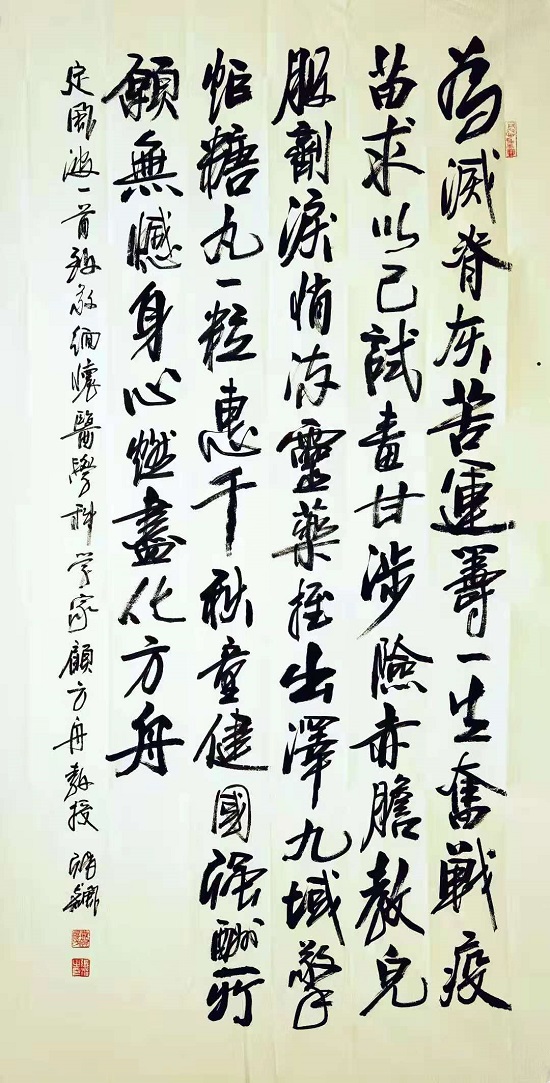 為滅脊灰苦運籌一生奮戰疫
苗求以己試毒甘涉險赤膽教兒
服劑淚悄流靈藥出澤九域擎
饴糖丸一粒惠千秋童健國强酬所
願無憾身心燃盡化方舟
定風波一首致敬緬懷醫學科学家顧方舟教授